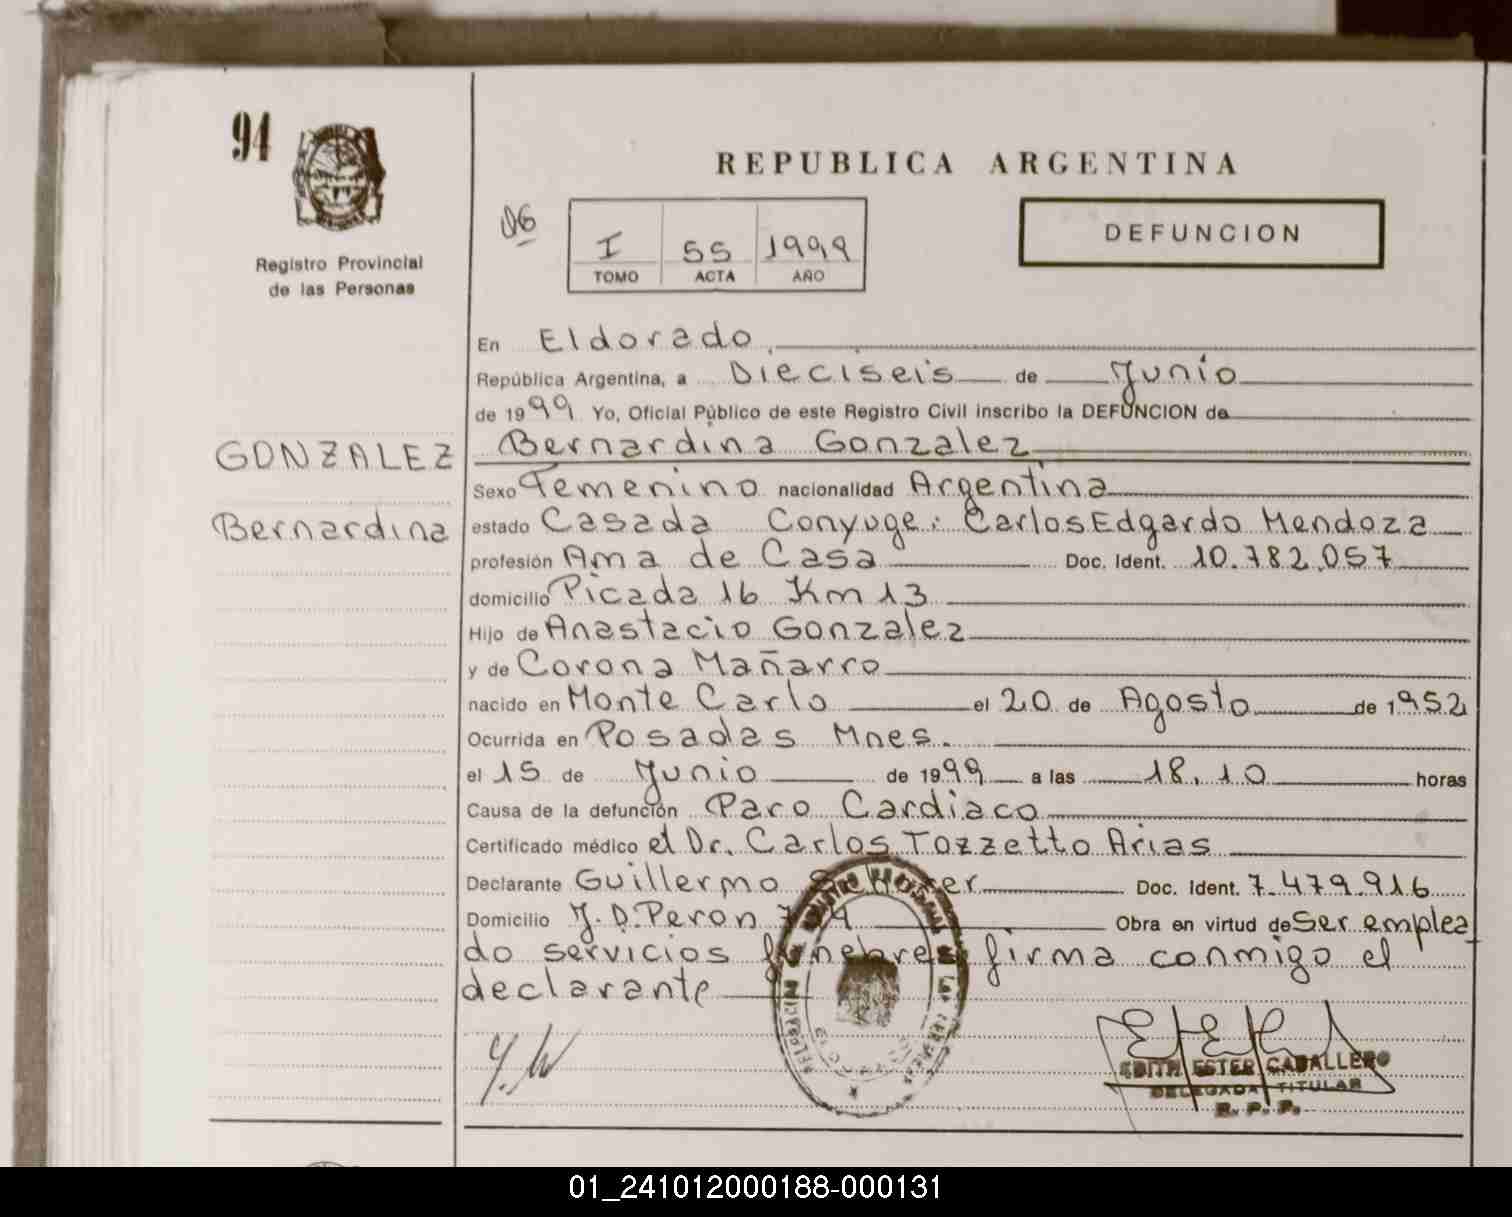 94
REPUBLICA ARGENTINA
I 55 1999
TOMO ACTA AÑO
DEFUNCION
Registro Provincial
de las Personas
En Eldorado
República Argentina, a Dieciseis de Junio
de 1999 Yo, Oficial Público de este Registro Civil inscribo la DEFUNCION de
GONZALEZ Bernardina Gonzalez
Sexo Femenino nacionalidad Argentina
Bernardina estado Casada Conyuge: Carlos Edgardo Mendoza
profesión Ama de Casa Doc. Ident. 10.782.057
domicilio Picada 16 Km 13
Hijo de Anastacio Gonzalez
y de Corona Mañarro
nacido en Monte Carlo el 20 de Agosto de 1952
Ocurrida en Posadas Mnes.
el 15 de Junio de 1999 a las 18,10 horas
Causa de la defunción Paro Cardiaco
Certificado médico el Dr. Carlos Tozzetto Arias
Declarante Guillermo Doc. Ident. 7.479.916
Domicilio J.D. Peron Obra en virtud de Ser emplea
do servicios funebres firma conmigo el
declarante
EDITH ESTER CABALLERO
DELEGADA TITULAR
R. P. P.
01_241012000188-000131